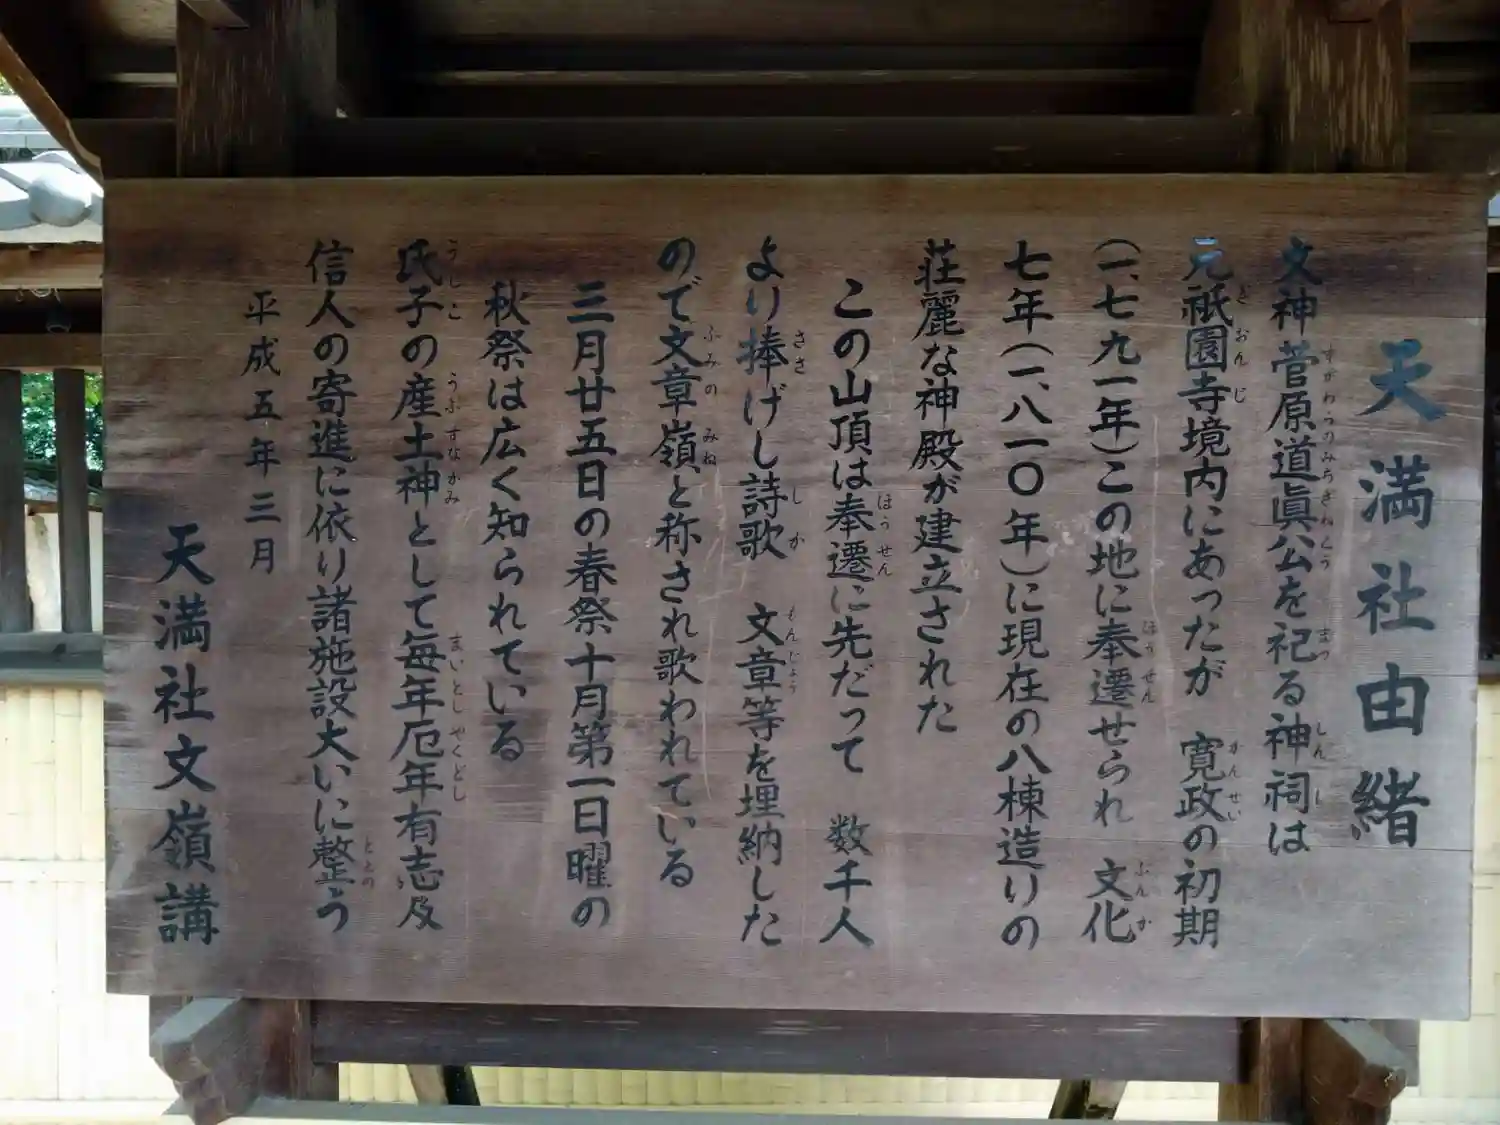 天満社由緒
文神 菅原道眞公を祀る神祠は
元祇園寺境内にあったが 寛政の初期
(一、七九一年)この地に奉遷せられ 文化
七年(一、八一〇年)に現在の八棟造りの
荘麗な神殿が建立された
この山頂は奉遷に先だって 数千人
より捧げし詩歌 文章等を埋納した
ので文章嶺と称され歌われている
三月廿五日の春祭十月第一日曜の
秋祭は広く知られている
氏子の産土神として毎年厄年有志及
信人の寄進に依り諸施設大いに整う
平成五年三月
天満社文嶺講